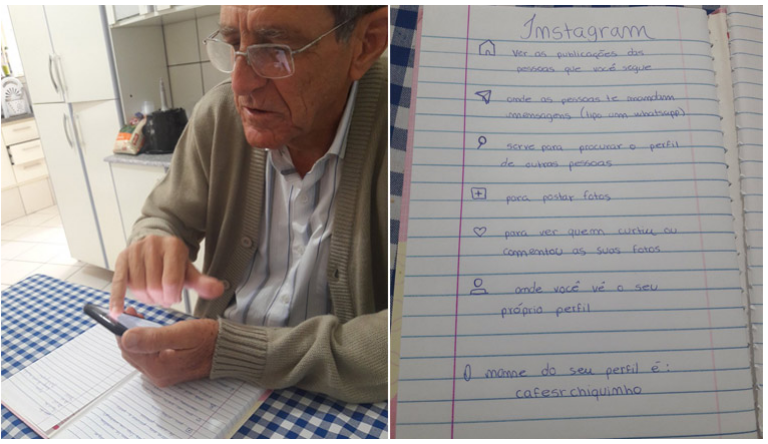 Instagram
ver as publicações das
pessoas que você segue
onde as pessoas te mandam
mensagens (tipo um whatsapp)
serve para procurar o perfil
de outras pessoas
para postar fotos
para ver quem curtiu ou
comentou as suas fotos
onde você vê o seu
próprio perfil
O nome do seu perfil é:
cafesrchiquinho